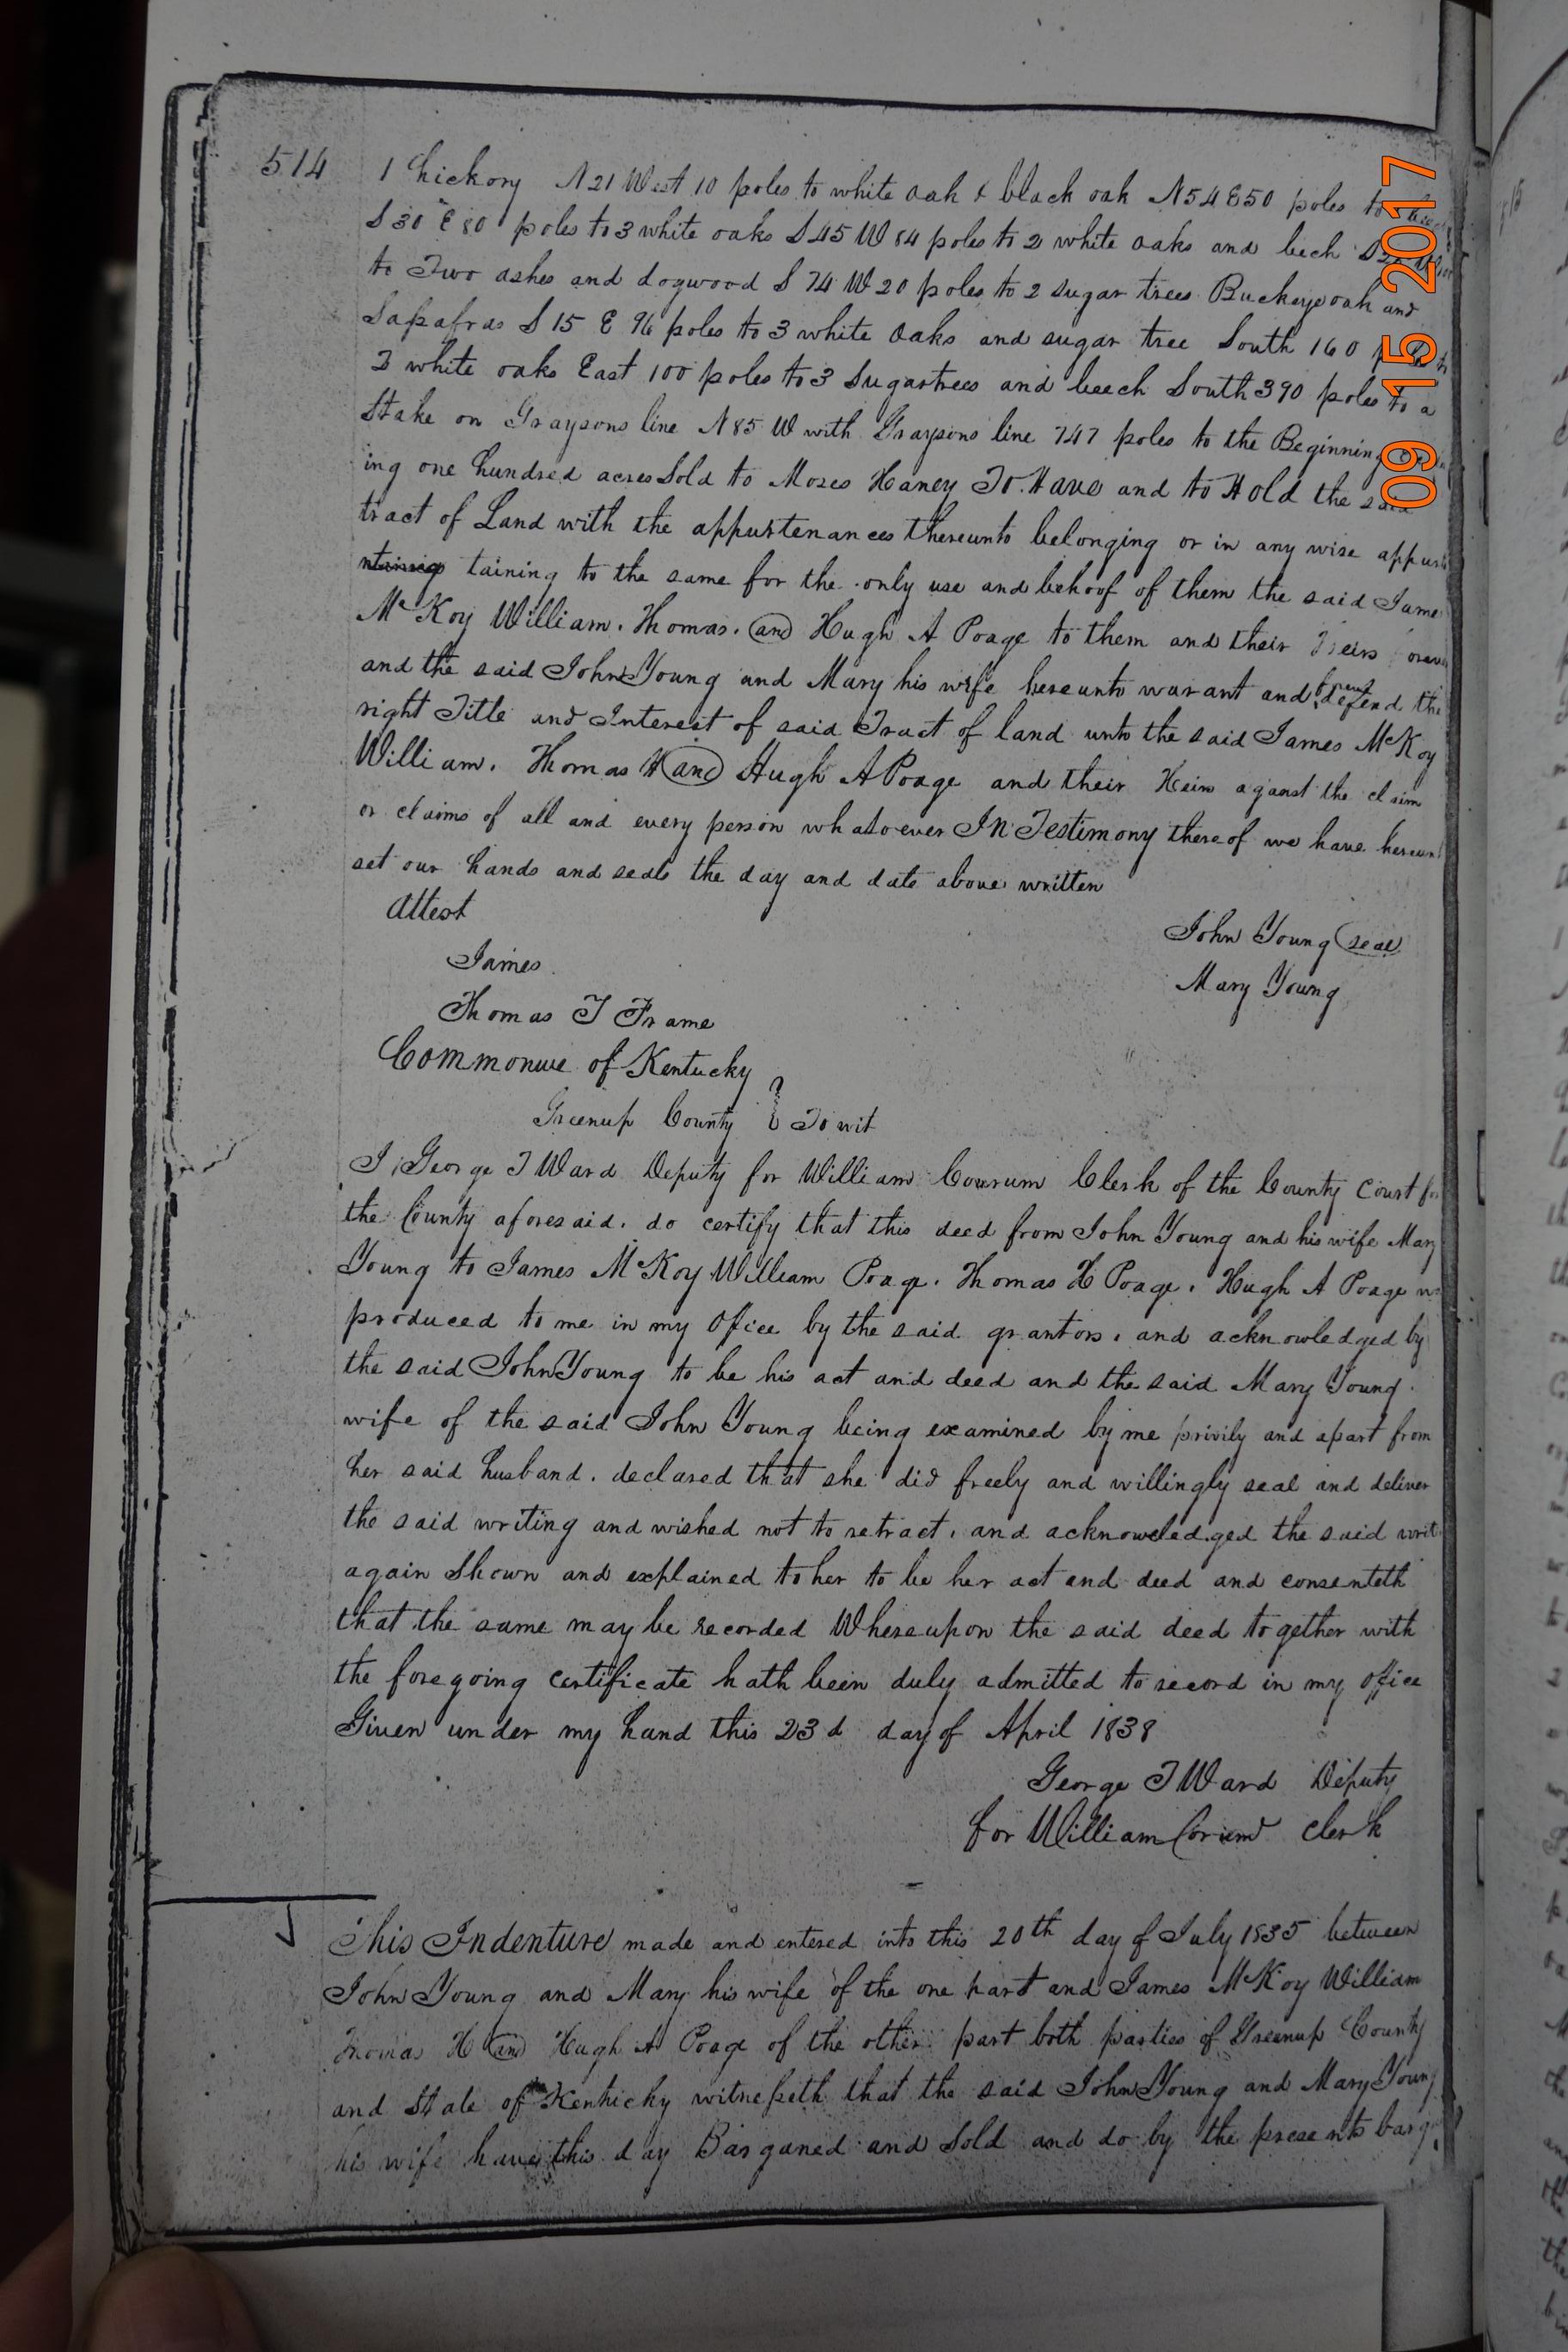 514
1 hickory N 21 West 10 poles to white oak & black oak N 54 E 50 poles to
S 30 E 80 poles to 3 white oaks S 45 W 84 poles to 2 white oaks and bech
to Two ashes and dogwood S 74 W 20 poles to 2 sugar trees Buckeye oak and
Sasafras S 15 E 96 poles to 3 white oaks and sugar tree South 160
3 white oaks East 100 poles to 3 Sugartrees and beech South 390 poles to a
Stake on Graysons line N 85 W with Graysons line 747 poles to the Beginning
ing one hundred acres Sold to Moses Haney To Have and to Hold the said
tract of Land with the appurtenances thereunto belonging or in any wise appur
taining to the same for the only use and behoof of them the said Jame
McKoy William. Thomas. and Hugh A Poage to them and their Heirs forever
and the said John Young and Mary his wife hereunto warant and defend the
right Title and Interest of said Tract of land unto the said James McKoy
William. Thomas H and Hugh A Poage and their Heirs aganst the claim
or claims of all and every person whatoever IN Testimony thereof we have hereun
set our hands and seals the day and date above written
Attest
John Young (seal)
James
Mary Young
Thomas T Frame
Commonwe of Kentucky
Greenup County } To wit
I George T Ward Deputy for William Courum Clerk of the County Court for
the County aforesaid. do certify that this deed from John Young and his wife Mary
Young to James McKoy William Poage. Thomas H Poage. Hugh A Poage
produced to me in my Office by the said grantors. and acknowledged by
the said John Young to be his act and deed and the said Mary Young.
wife of the said John Young being examined by me privily and apart from
her said husband. declared that she did freely and willingly seal and deliver
the said writing and wished not to retract. and acknoweledged the said writ
again Shewn and explained to her to be her act and deed and consenteth
that the same may be recorded Whereupon the said deed together with
the foregoing certificate hath been duly admitted to record in my office
Given under my hand this 23d day of April 1838
George T Ward Deputy
for William Corum Clerk
This Indenture made and entered into this 20th day of July 1835 between
John Young and Mary his wife of the one part and James McKoy William
Thomas H and Hugh A Poage of the other part both parties of Greenup County
and State of Kentucky witnesseth that the said John Young and Mary Young
his wife have this day Barganed and Sold and do by the presents barg
09 15 2017